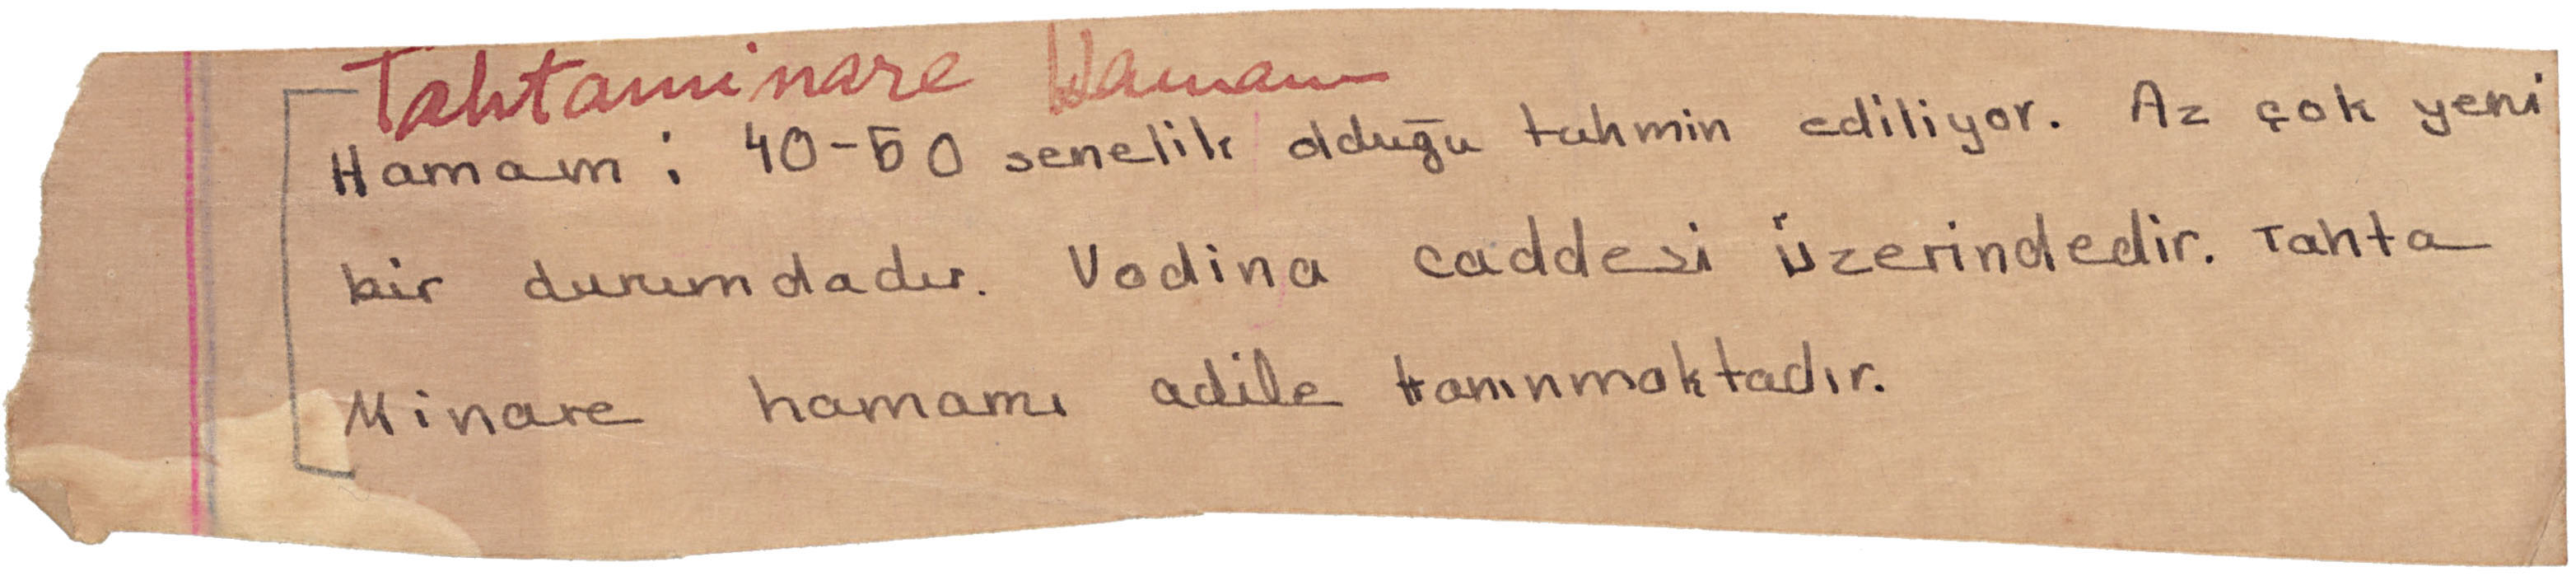 Tahtaminare Hamam
Hamam : 40-50 senelik olduğu tahmin ediliyor. Az çok yeni
bir durumdadır. Vodina caddesi üzerindedir. Tahta
Minare hamamı adile tanınmaktadır.